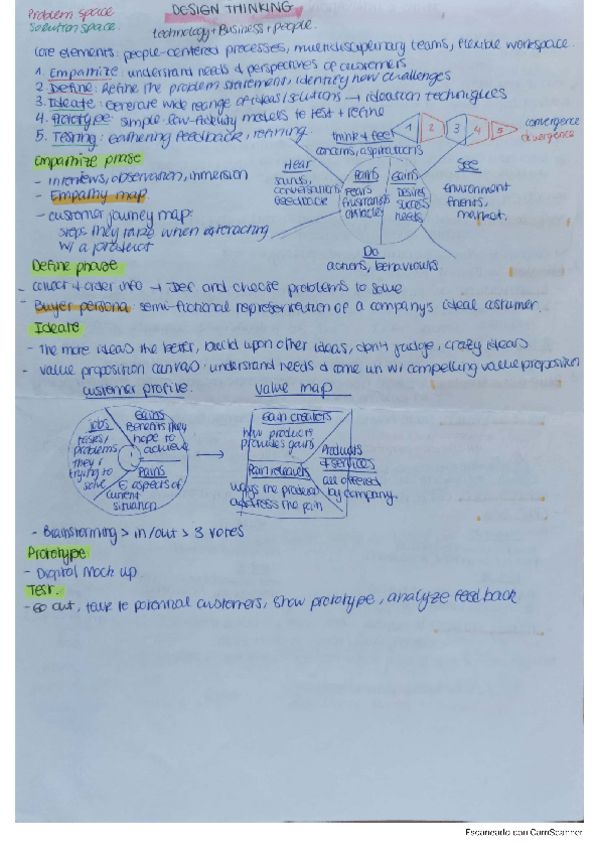 Problem space
Solution space
DESIGN THINKING
technology + Business + people.
core elements: people-centered processes, multidisciplinary teams, flexible workspace.
1. Empathize: understand needs & perspectives of customers
2. Define: Refine the problem statement, identify how challenges
3. Ideate: Generate wide range of ideas/solutions → ideation techniques
4. Prototype: simple low-fidelity models to test + refine
5. Testing: Gathering feedback, refining.
1 2 3 4 5
convergence
divergence
think + feel
concerns, aspirations
Hear
sounds,
conversations
feedback
Pains
Fears
frustrations
obstacles
Gains
Desires
success
needs
See
Environment
friends,
market.
Do
actions, behaviours
Empathize phase
- interviews, observation, immersion
- Empathy map
- customer journey map:
steps they take when interacting
w/ a product
Define phase
- collect + order info → Def and choose problems to solve
- Buyer persona: semi-fictional representation of a company's ideal costumer.
Ideate
- The more ideas the better, build upon other ideas, don't judge, crazy ideas
- value proposition canvas: understand needs & come up w/ compelling value proposition
customer profile.
value map
Jobs
tasks/
problems
they r
trying to
solve
Gains
Benefits they
hope to
achieve
Pains
∈ aspects of
current
situation
Gain creators
how products
provides gains
Pain relievers
ways the product
address the pain
Products
& services
all offered
by company.
- Brainstorming > in/out > 3 votes
Prototype
- Digital Mock up
Test.
- Go out, talk to potential customers, show prototype, analyze feedback
Escaneado con CamScanner